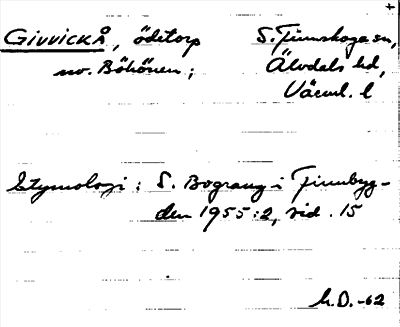 GIVVICKÅ, ödetorp S. Finnskoga sn,
nv. Böhönen; Älvdals hd,
Värml. l
Etymologi: S. Bograng i Finnbyg-
den 1955:2, sid. 15
h.D. -62